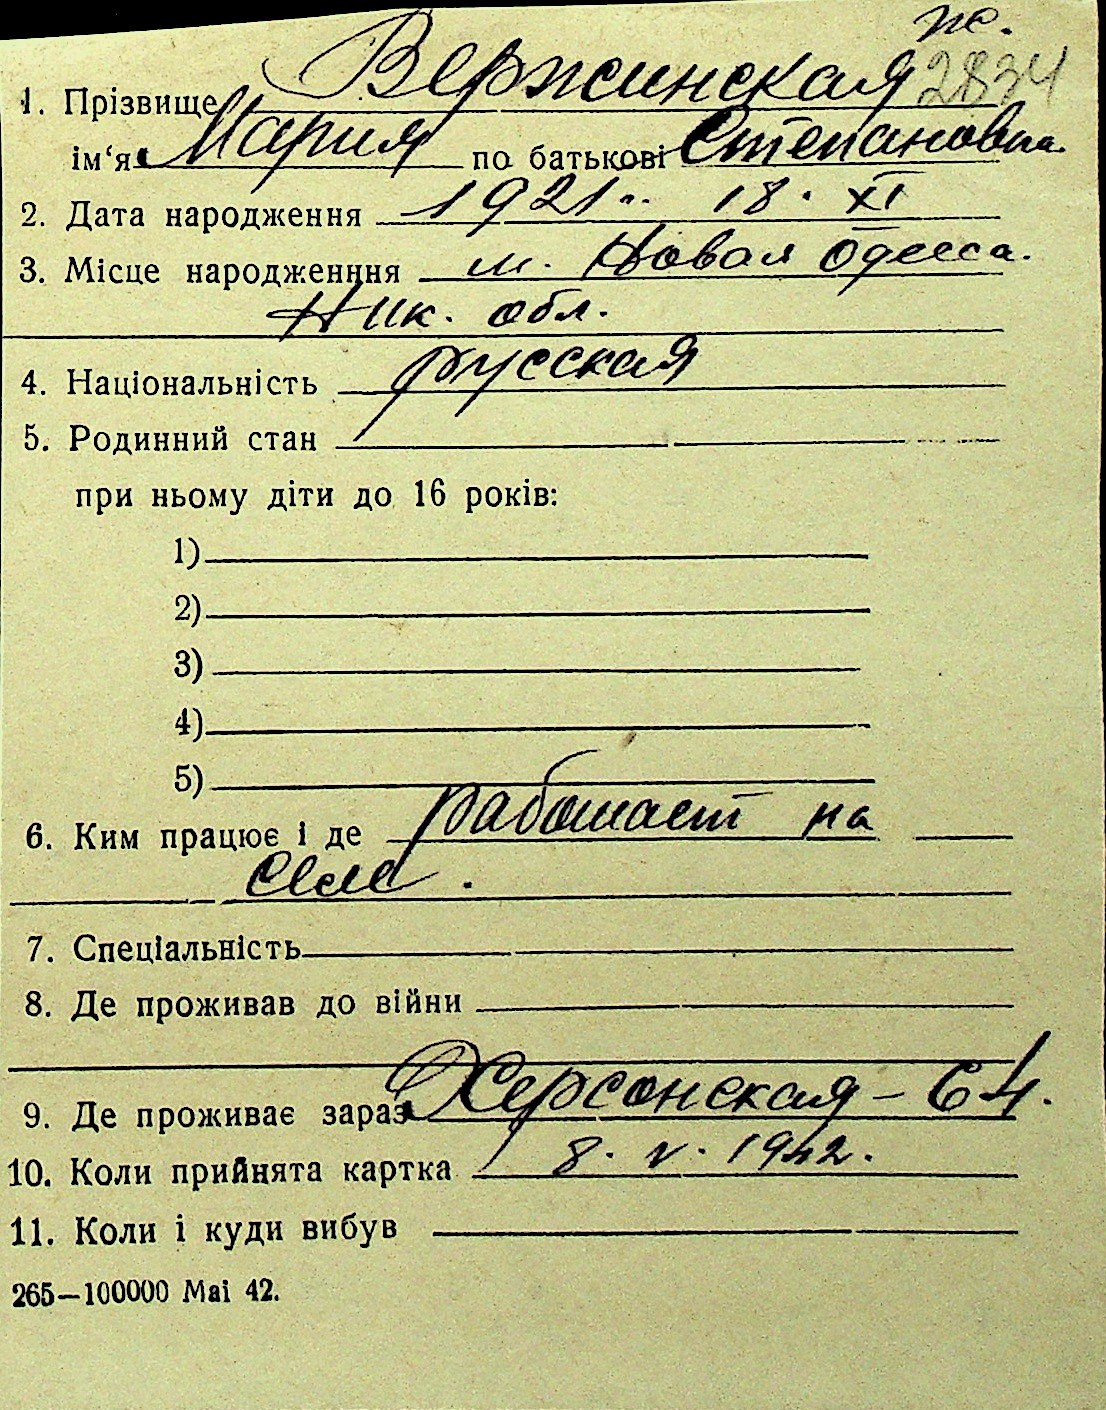 ж.
1. Прізвище Вержинская 2834
ім‘я Мария по батькові Степановна
2. Дата народження 1921 18. XI
3. Місце народженння м. Новая Одесса.
Ник. обл.
4. Національність русская
5. Родинний стан
при ньому діти до 16 років:
1)
2)
3)
4)
5)
6. Ким працює і де работает на
селе.
7. Спеціальність
8. Де проживав до війни
9. Де проживає зараз Херсонская – 64.
10. Коли прийнята картка 8. V. 1942.
11. Коли і куди вибув
265—100000 Mai 42.